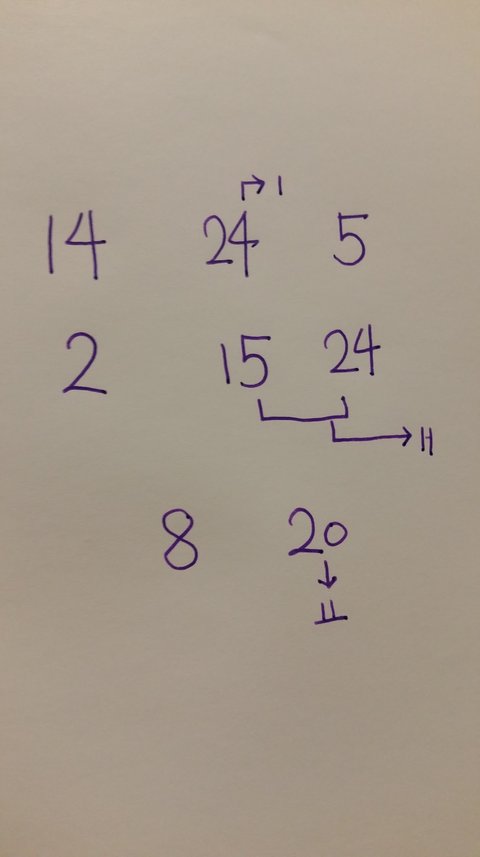 1
14 24 5
2 15 24
H
8 20